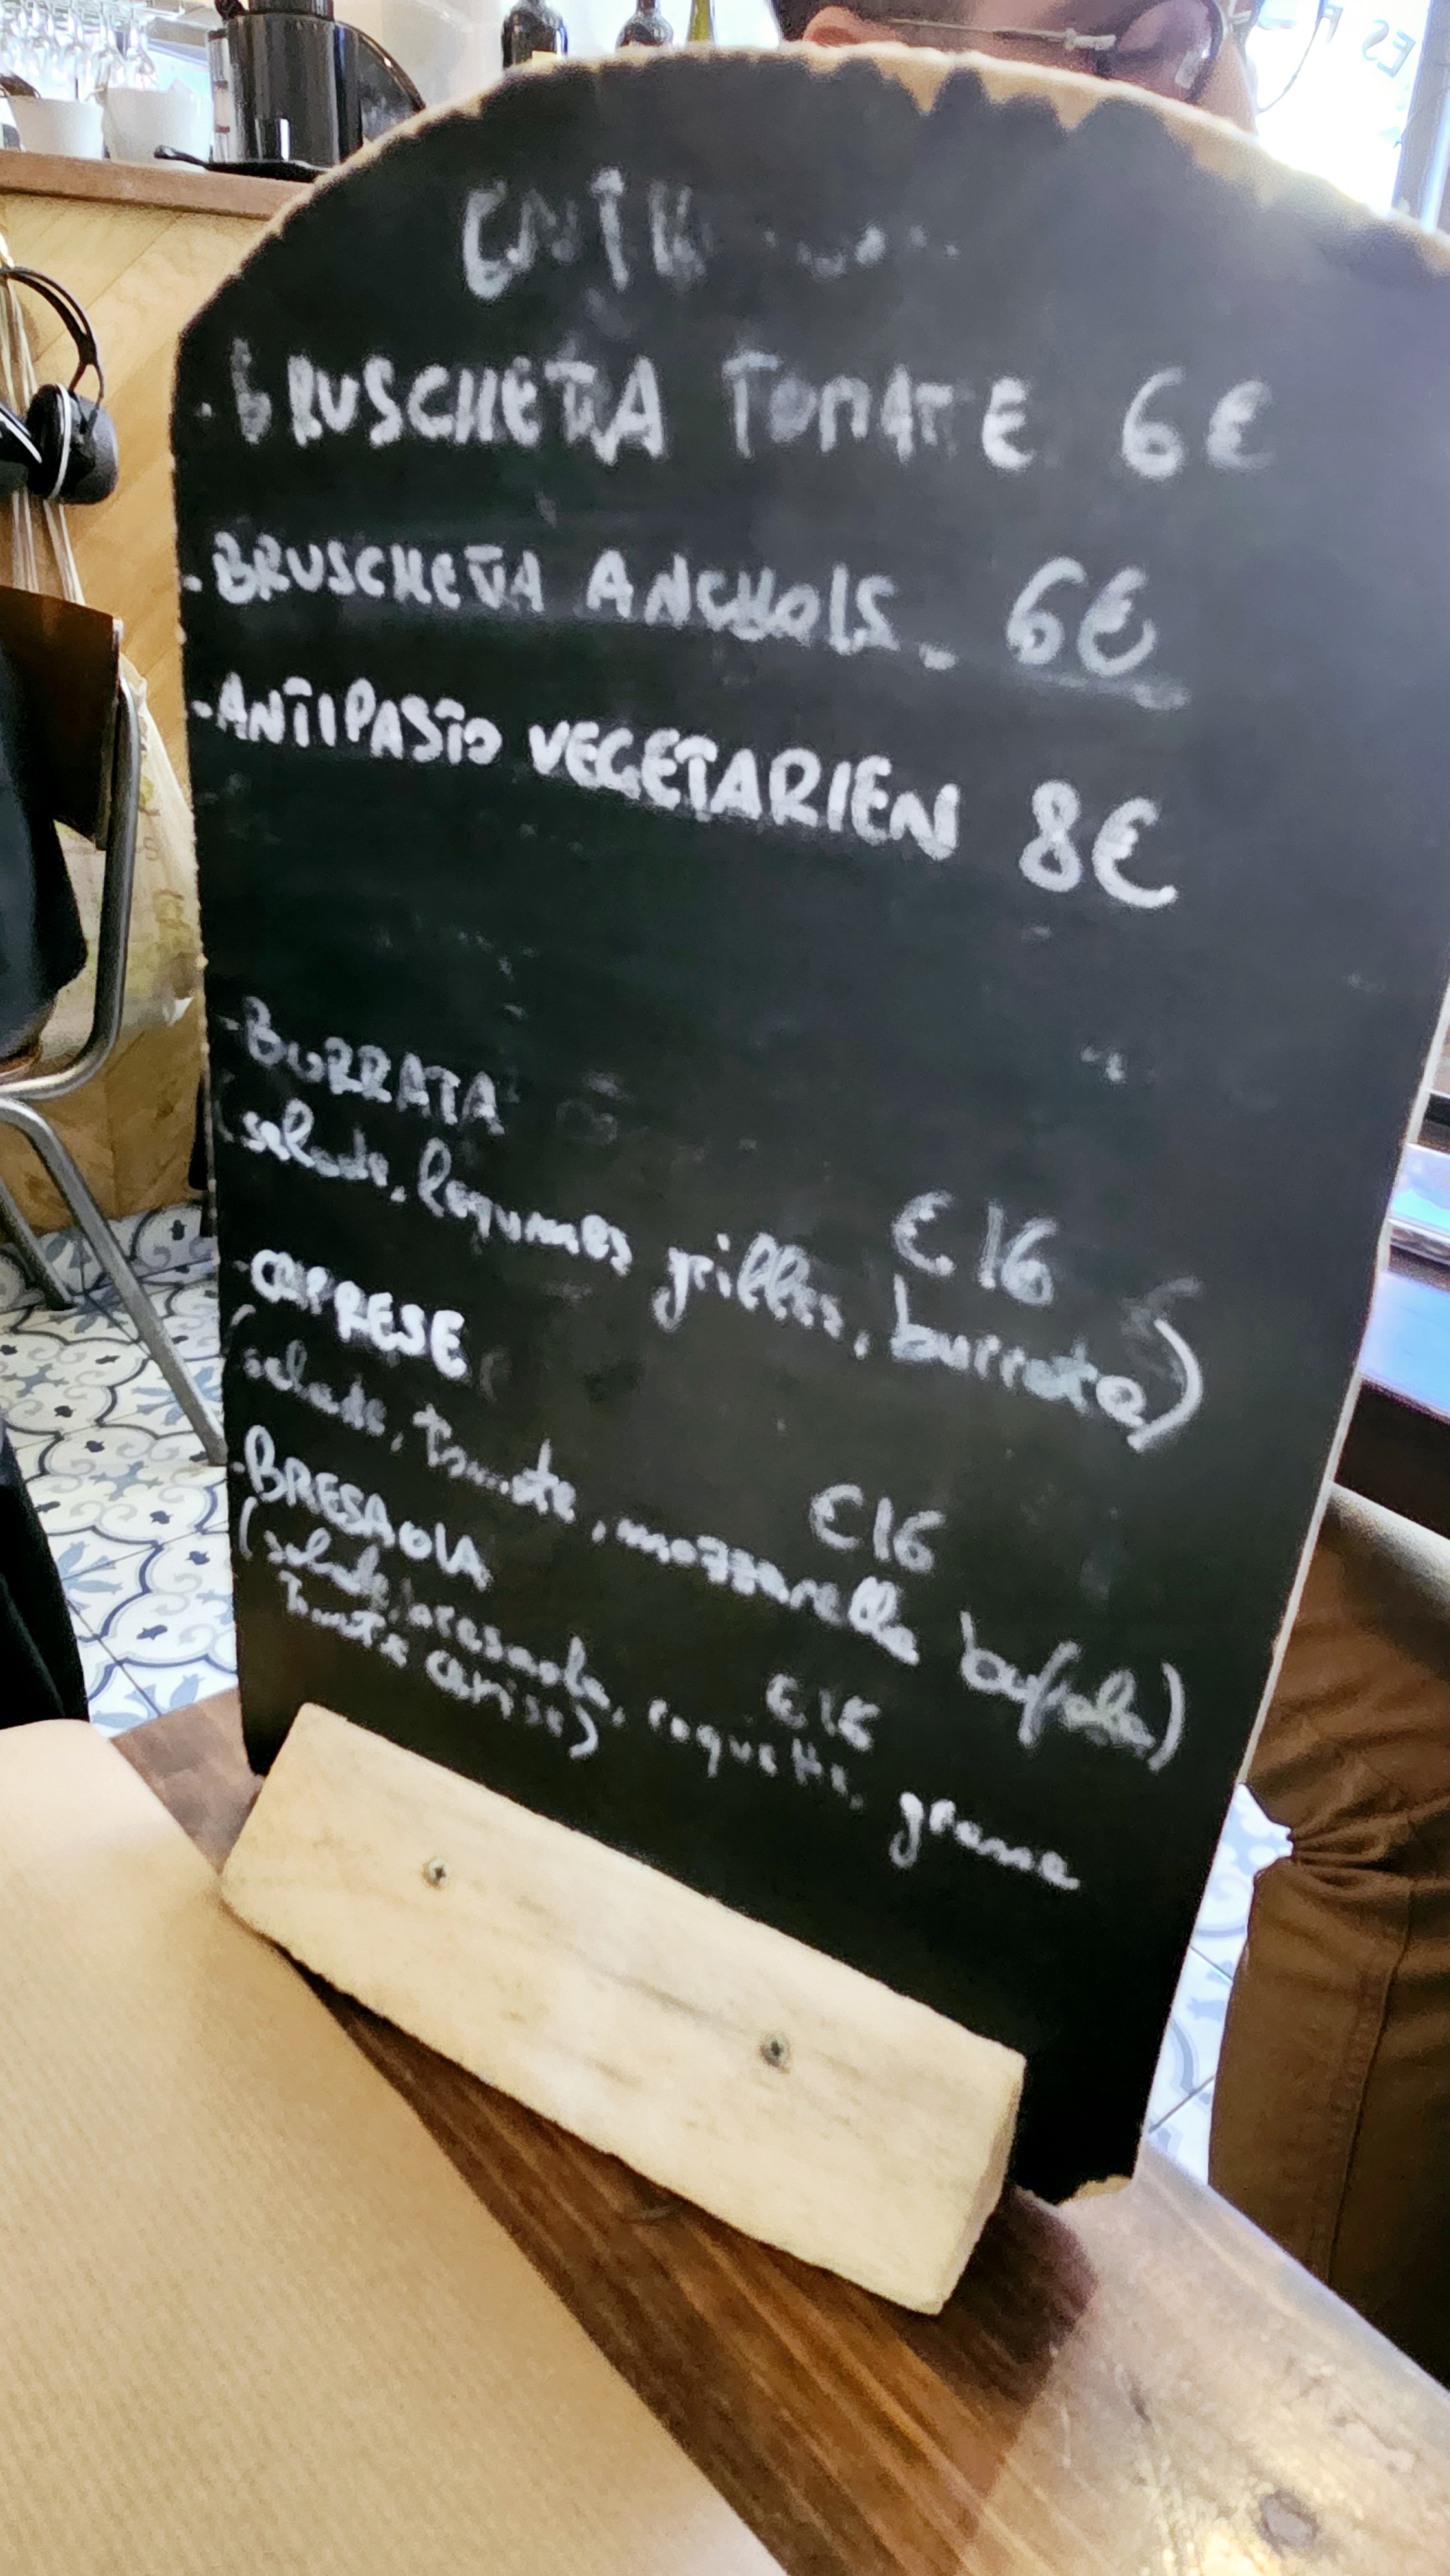 - BRUSCHETTA TOMATE 6€
- BRUSCHETTA ANCHOIS - 6€
- ANTIPASTO VEGETARIEN 8€
- BURRATA € 16
salade, legumes grilles, burrata)
- CAPRESE €16
(salade, tomate, mozzarella bufala)
- BRESAOLA
(salade, bresaola, roquette, grana
Tomate cerise)